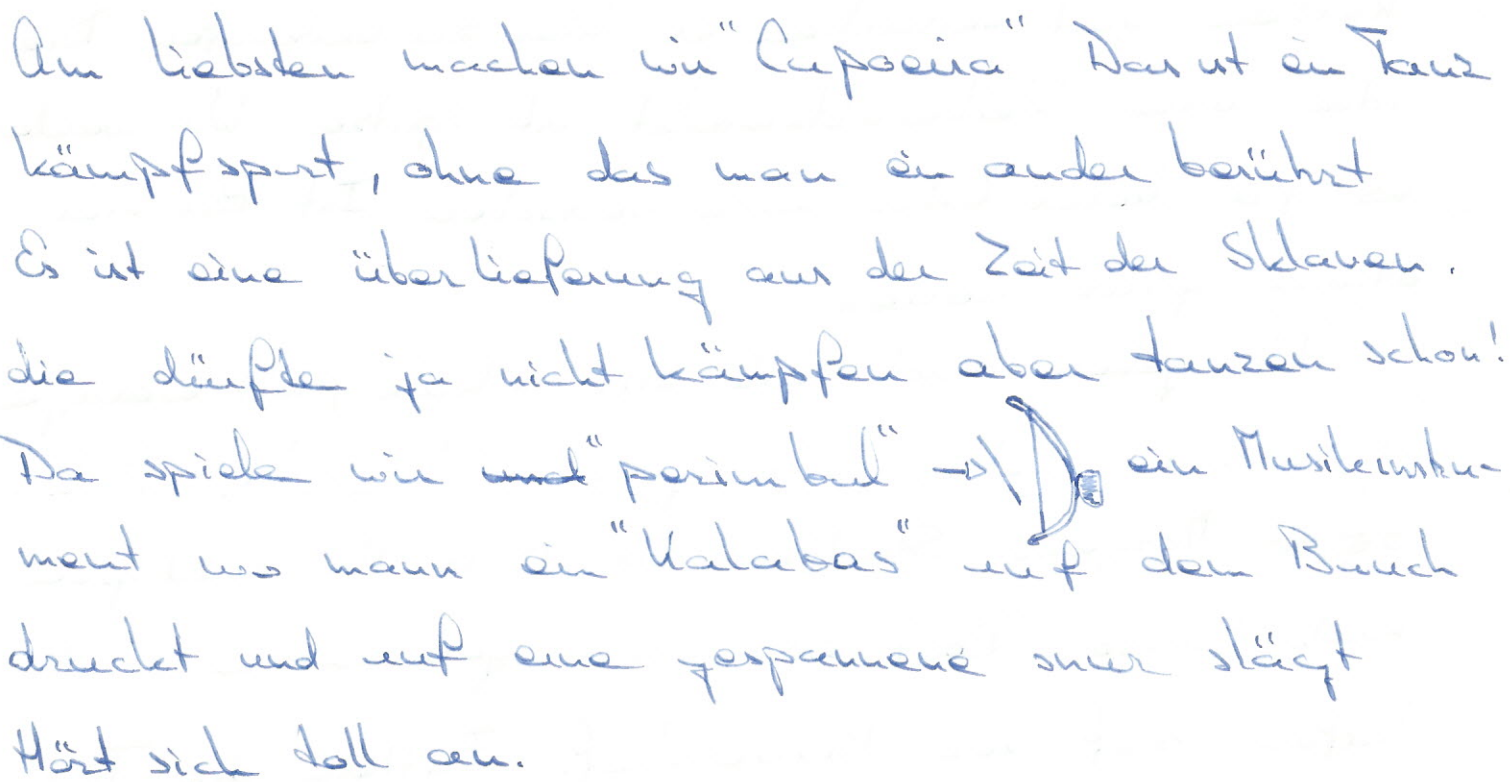 Am liebsten machen wir "Capoeira" Das ist ein Tanz
kämpfsport, ohne das man ein ander berührt
Es ist eine überlieferung aus der Zeit der Sklaven.
die dürfte ja nicht kämpfen aber tanzen schon!
Da spiele wir und "perimbal" → ein Musikinstru-
ment wo mann ein "Kalabas" auf dem Bauch
druckt und auf eine gespannene snur slägt
Hört sich toll an.